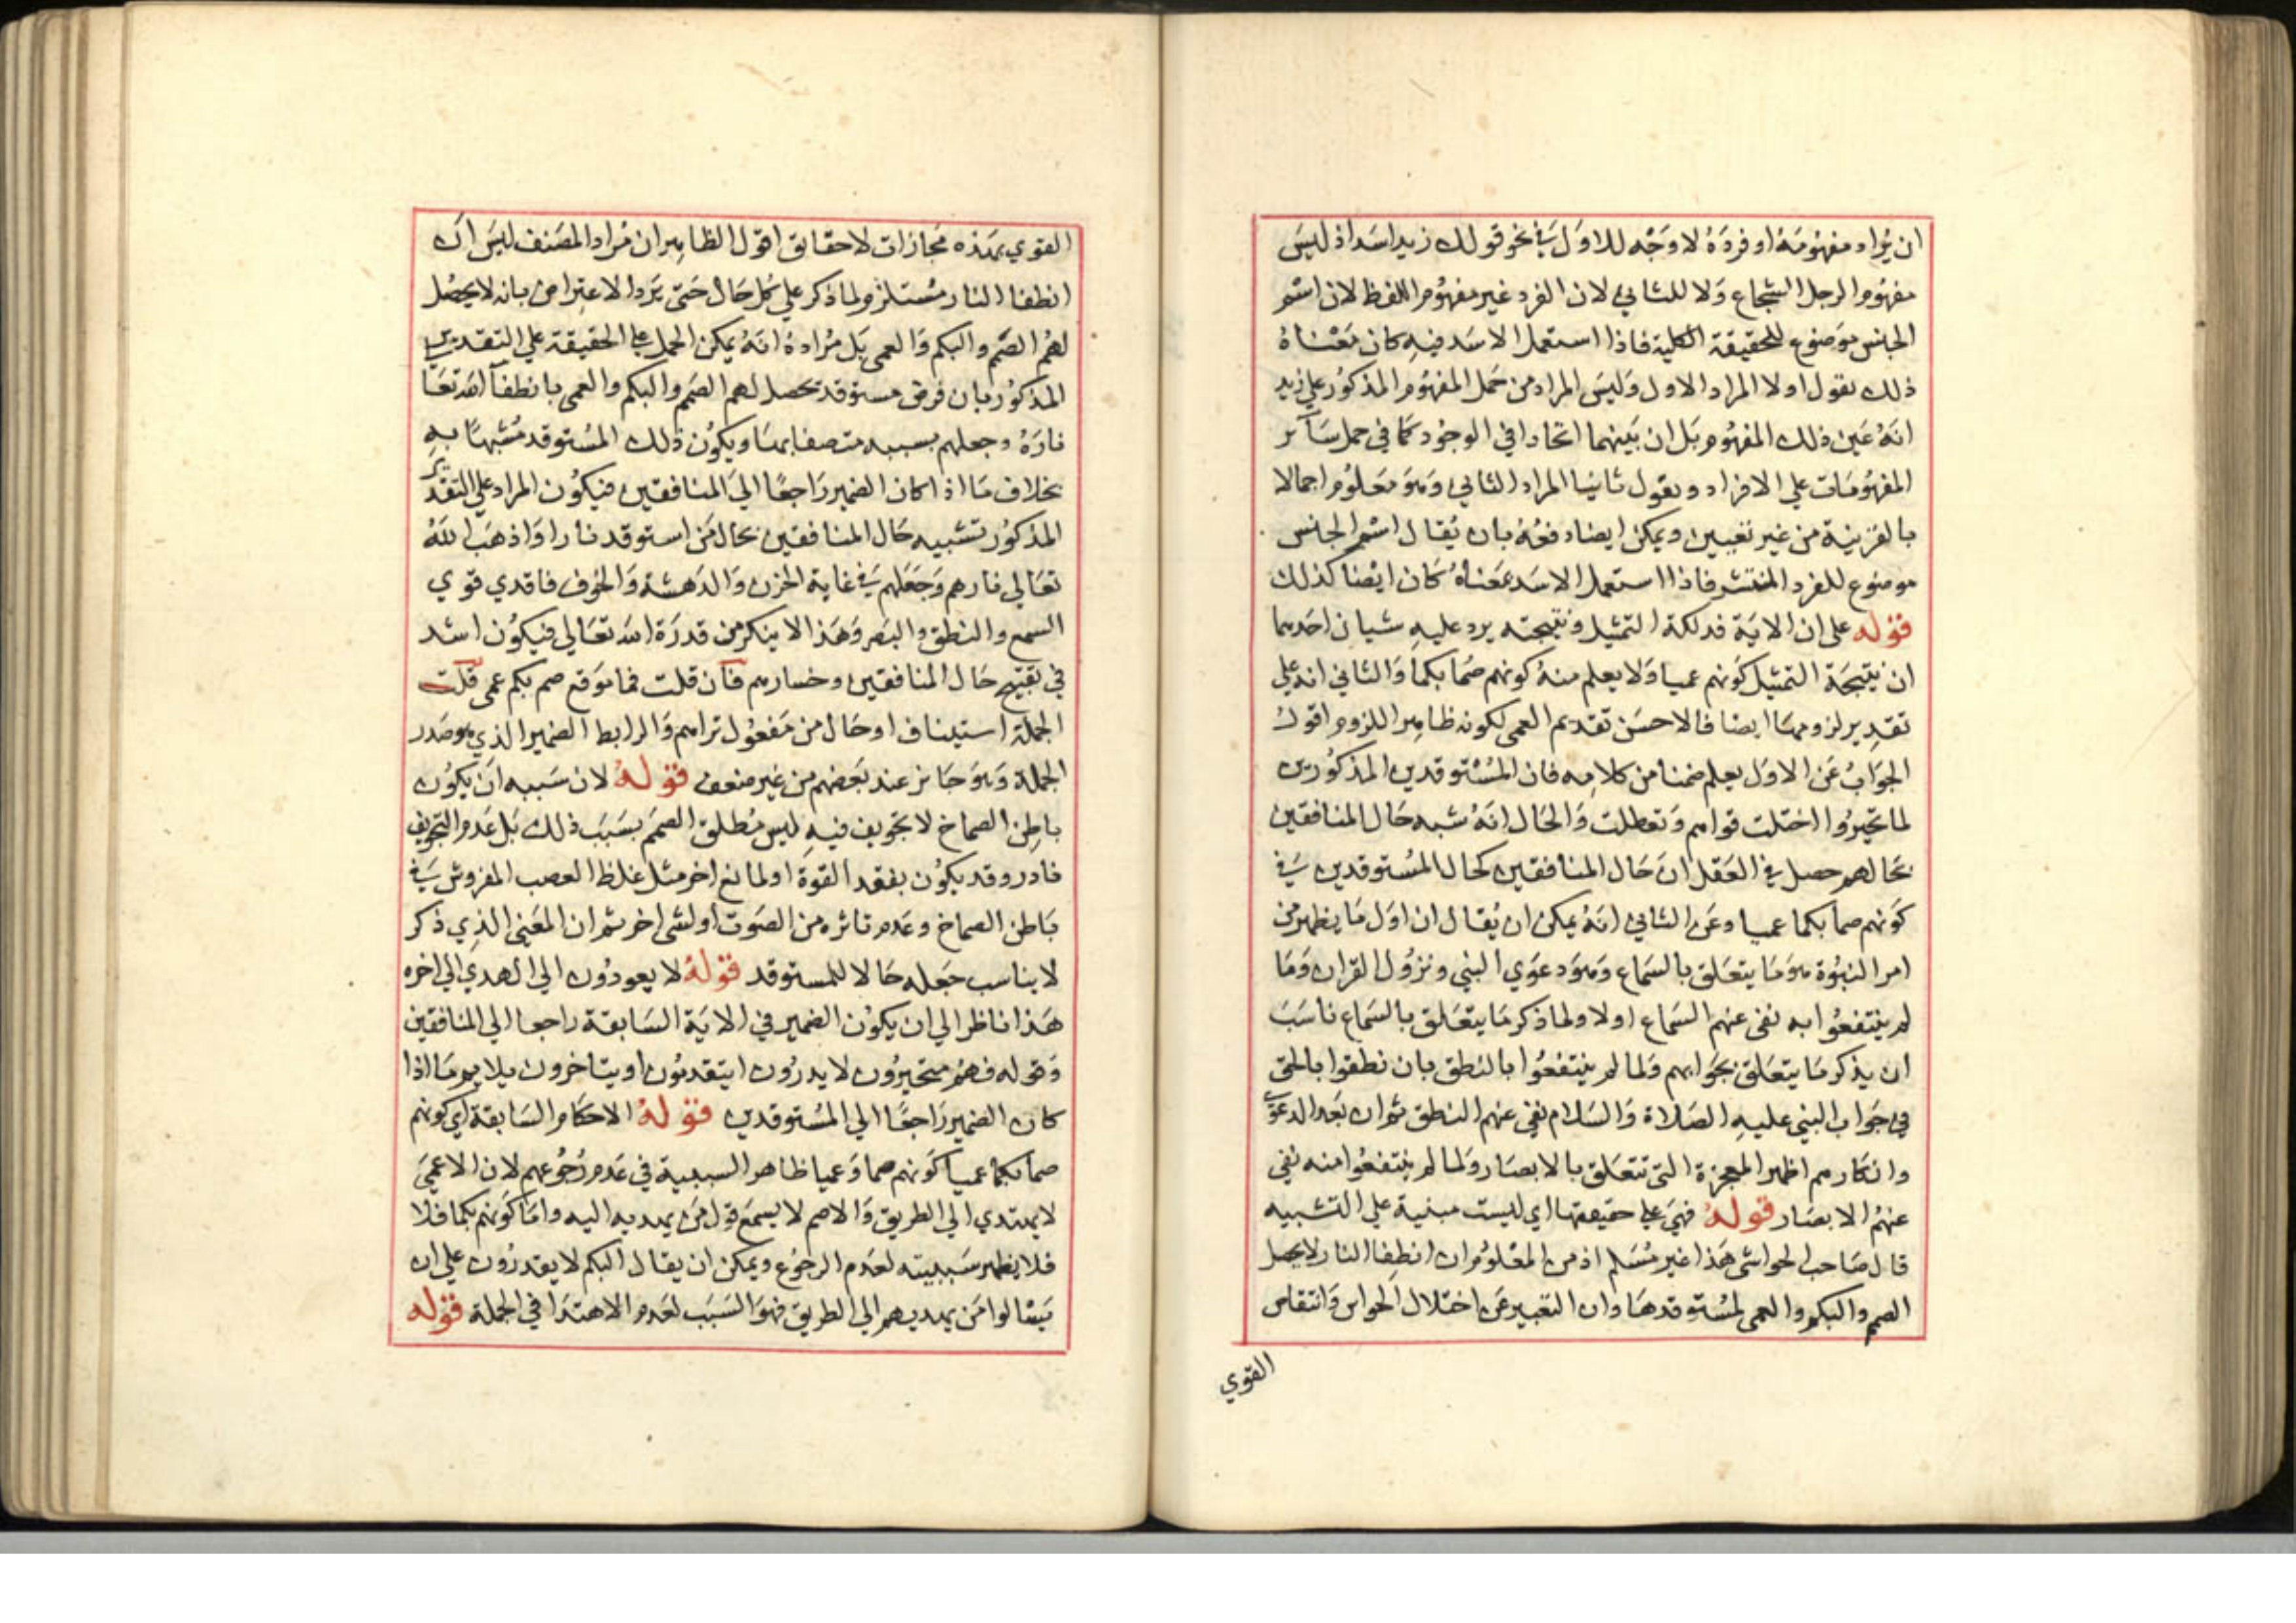 ان يراد مفهومه او فرده لا وجه للاول في نحو قولك زيد اسد اذ ليس
مفهوم الرجل الشجاع ولا للثاني لان الفرد غير مفهوم اللفظ لان اسم
الجنس موضوع للحقيقة الكلية فاذا استعمل الاسد فيه كان معناه
ذلك نقول اولا المراد الاول وليس المراد من حمل المفهوم المذكور علي زيد
انه عين ذلك المفهوم بل ان بينهما اتحادا في الوجود كما في حمل سآئر
المفهومات علي الافراد ونقول ثانيا المراد الثاني وهو معلوم اجمالا
بالقرينة من غير تعيين ويمكن ايضا دفعه بان يقال اسم الجنس
موضوع للفرد المنتشر فاذا استعمل الاسد بمعناه كان ايضا كذلك
قوله علي ان الاية فذلكة التمثيل ونتيجته يرد عليه شيان احدهما
ان نتيجة التمثيل كونهم عميا ولا يعلم منه كونهم صما بكما والثاني انه علي
تقدير لزومهما ايضا فالاحسن تقديم العمى لكونه ظاهر اللزوم اقول
الجواب عن الاول يعلم ضمنا من كلامه فان المستوقدين المذكورين
لما تحيروا اختلت قواهم وتعطلت والحال انه شبه حال المنافقين
بحالهم حصل في العقل ان حال المنافقين كحال المستوقدين في
كونهم صما بكما عميا وعن الثاني انه يمكن ان يقال ان اول ما يظهر من
امر النبوة هو ما يتعلق بالسماع وهو دعوي النبي ونزول القران وما
لم ينتفعوا به نفي عنهم السماع اولا ولما ذكر ما يتعلق بالسماع ناسب
ان يذكر ما يتعلق بجوابهم ولما لم ينتفعوا بالنطق بان نطقوا بالحق
في جواب النبي عليه الصلاة والسلام نفي عنهم النطق ثم ان بعد الدعوي
وانكارهم اظهر المعجزة التي تتعلق بالابصار ولما لم ينتفعوا منه نفي
عنهم الابصار قوله فهي علي حقيقتها اي ليست مبنية علي التشبيه
قال صاحب الحواشي هذا غير مسلم اذ من المعلوم ان انطفا النار لا يحصل
الصم والبكم والعمى لمستوقدها وان التعبير عن اختلال الحواس وانتقاص
القوي
القوي بهذه مجازات لا حقايق اقول الظاهر ان مراد المصنف ليس ان
انطفا النار مستلزم لما ذكر علي كل حال حتى يرد الاعتراض بانه لا يحصل
لهم الصم والبكم والعمى بل مراده انه يمكن الحمل علي الحقيقة علي التقدير
المذكور بان فرض مستوقد تحصل لهم الصم والبكم والعمى بانطفآ الله تعا
ناره وجعلهم بسببه متصفا بها ويكون ذلك المستوقد مشبها به
بخلاف ما اذا كان الضمير راجعا الي المنافقين فيكون المراد علي التقدير
المذكور تشبيه حال المنافقين بحال من استوقد نارا واذهب الله
تعالي نارهم وجعلهم في غاية الحزن والدهشة والخوف فاقدي قوي
السمع والنطق والبصر وهذا لا ينكر من قدرة الله تعالي فيكون اشد
في تقبيح حال المنافقين وخسارهم فان قلت فما موقع صم بكم عمي قلت
الجملة استيناف او حال من مفعول تراهم والرابط الضمير الذي هو صدر
الجملة وهو جائز عند بعضهم من غير ضعف قوله لان سببه ان يكون
باطن الصماخ لا تجويف فيه ليس مطلق الصمم بسبب ذلك بل عدم التجويف
نادر وقد يكون بفقد القوة او لمانع اخر مثل غلظ العصب المفروش في
باطن الصماخ وعدم تاثره من الصوت او لشي اخر ثم ان المعني الذي ذكر
لا يناسب جعله حالا للمستوقد قوله لا يعودون الي الهدي الي اخره
هذا ناظر الي ان يكون الضمير في الاية السابقة راجعا الي المنافقين
وقوله فهم متحيرون لا يدرون ايتقدمون او يتاخرون يلايم ما اذا
كان الضمير راجعا الي المستوقدين قوله الاحكام السابقة اي كونهم
صما بكما عميا كونهم صما وعميا ظاهر السببية في عدم رجوعهم لان الاعمي
لا يهتدي الي الطريق والاصم لا يسمع قول من يهديه اليه واما كونهم بكما فلا
فلا يظهر سببيته لعدم الرجوع ويمكن ان يقال البكم لا يقدرون علي ان
يسالوا من يهديهم الي الطريق فهو السبب لعدم الاهتدا في الجملة قوله